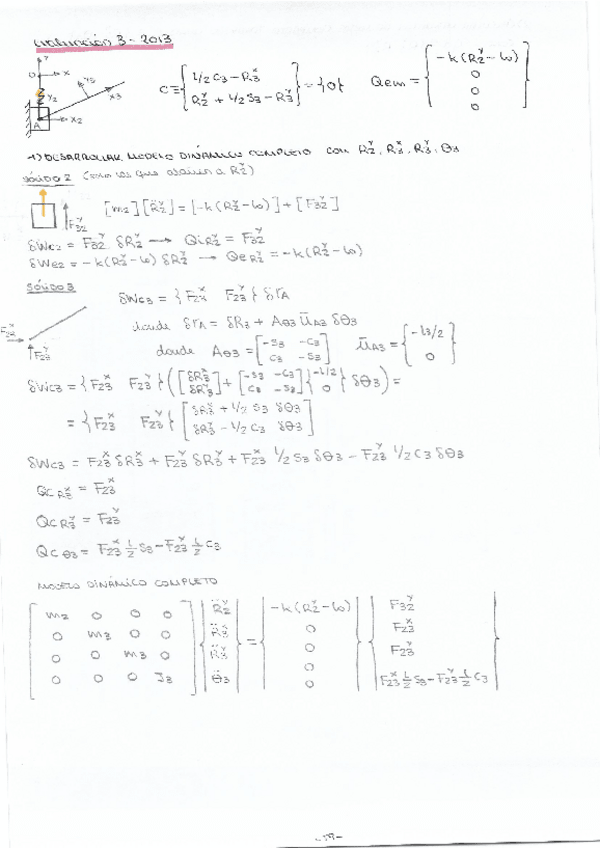 evaluación 3 - 2013
Y
O X
Y3
X3
Y2
A X2
C ≡ { L/2 C3 - R3^x ; R2^y + L/2 S3 - R3^y } = {0}
Qem = { -k(R2^y - l0) ; 0 ; 0 ; 0 }
1) DESARROLLAR MODELO DINÁMICO COMPLETO con R2^y, R3^x, R3^y, θ3
SÓLIDO 2
F32^y
[m2] [R̈2^y] = [-k(R2^y - l0)] + [F32^y]
δWc2 = F32^y δR2^y → Qi R2^y = F32^y
δWe2 = -k(R2^y - l0) δR2^y → Qe R2^y = -k(R2^y - l0)
SÓLIDO 3
F23^x
F23^y
δWc3 = { F23^x F23^y } δrA
donde δrA = δR3 + Aθ3 ūA3 δθ3
donde Aθ3 = [ -S3 -C3 ; C3 -S3 ] ūA3 = { -L3/2 ; 0 }
δWc3 = { F23^x F23^y } ( [ δR3^x ; δR3^y ] + [ -S3 -C3 ; C3 -S3 ] { -L/2 ; 0 } δθ3 ) =
= { F23^x F23^y } [ δR3^x + L/2 S3 δθ3 ; δR3^y - L/2 C3 δθ3 ]
δWc3 = F23^x δR3^x + F23^y δR3^y + F23^x L/2 S3 δθ3 - F23^y L/2 C3 δθ3
Qc R3^x = F23^x
Qc R3^y = F23^y
Qc θ3 = F23^x L/2 S3 - F23^y L/2 C3
MODELO DINÁMICO COMPLETO
m2 0 0 0 R̈2^y -k(R2^y - l0) F32^y
0 m3 0 0 R̈3^x = 0 F23^x
0 0 m3 0 R̈3^y 0 F23^y
0 0 0 J3 θ̈3 0 F23^x L/2 S3 - F23^y L/2 C3
0